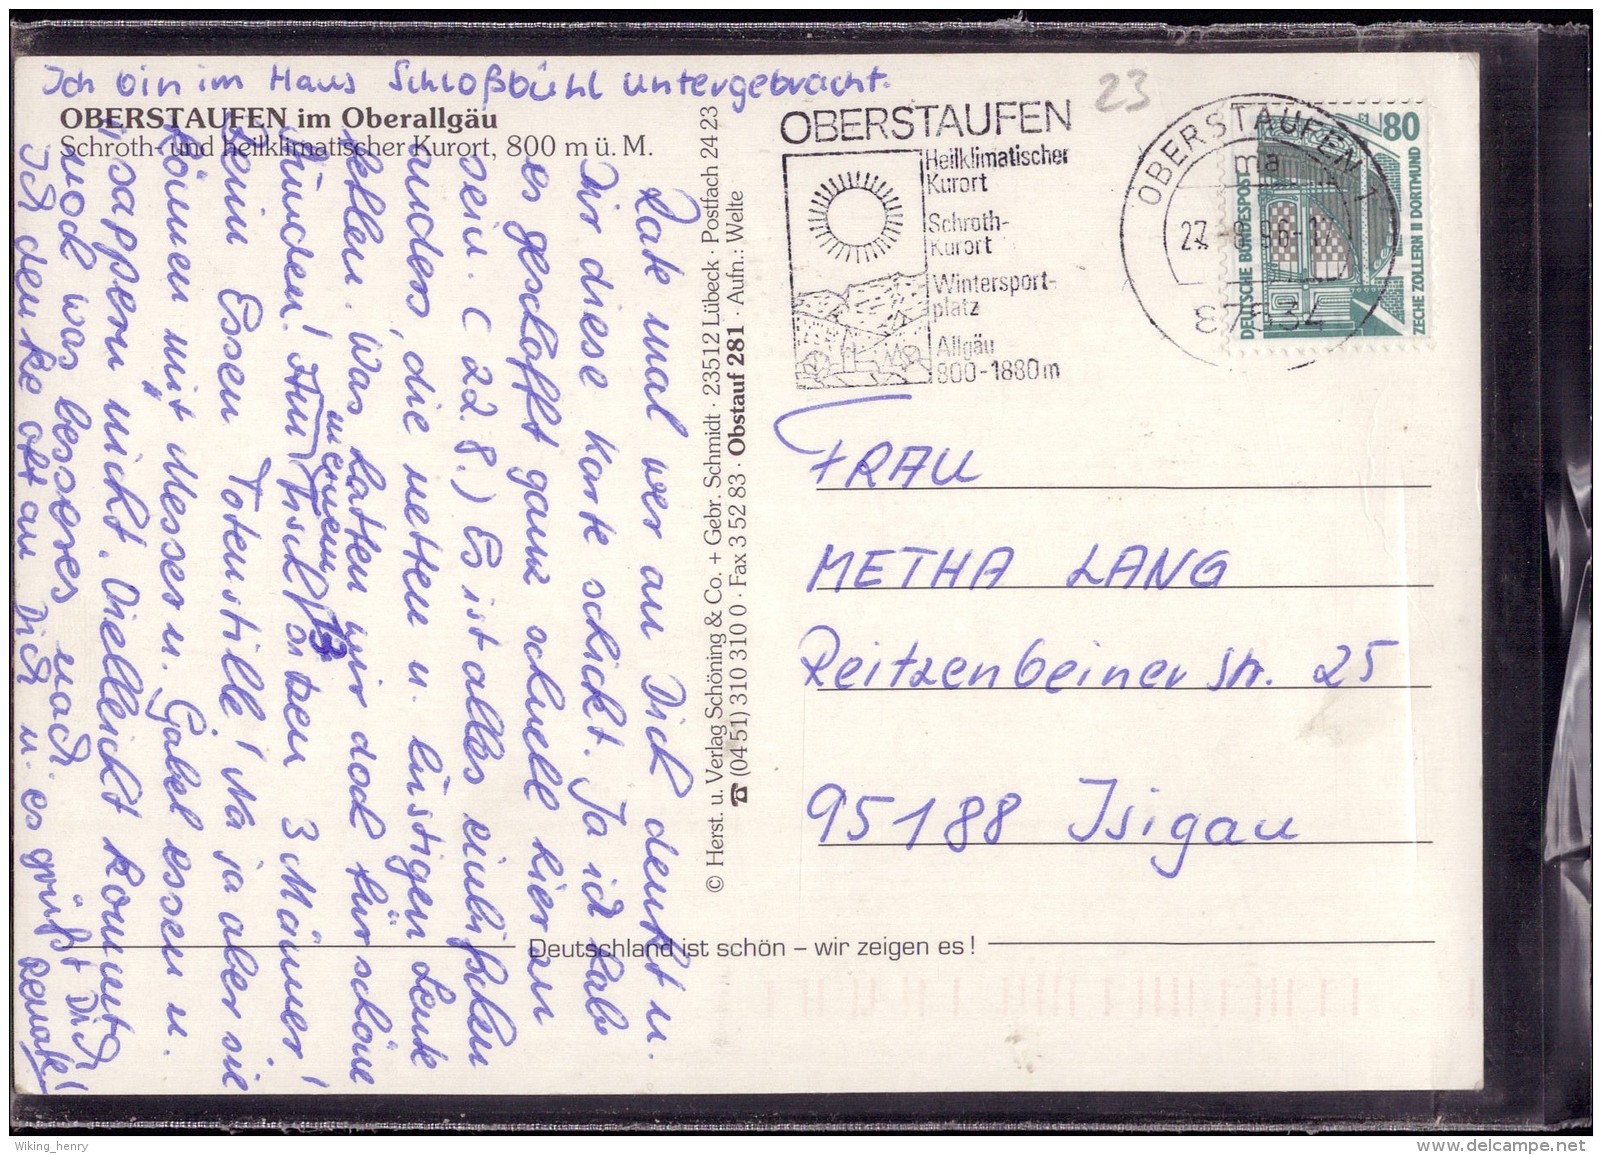 Ich bin im Haus Schloßbühl untergebracht.
OBERSTAUFEN im Oberallgäu
Schroth- und heilklimatischer Kurort, 800 m ü. M.
Rate mal wer an Dich denkt u.
Dir diese Karte schickt. Ja ich hab
es geschafft ganz schnell hier zu
sein. (22.8.) Es ist alles ein bißchen
anders, die netten u. lustigen Leute
fehlen. Was hatten wir doch für schöne
Stunden! An meinem Tisch 13 sitzen 3 Männer!
Beim Essen Totenstille! Na ja aber sie
können mit Messer u. Gabel essen u.
sappern nicht. Vielleicht kommt
noch was besseres nach.
Ich denke oft an Dich u. es grüßt Dich
Renate!
© Herst. u. Verlag Schöning & Co. + Gebr. Schmidt · 23512 Lübeck · Postfach 24 23
☎ (04 51) 310 310 0 · Fax 3 52 83 · Obstauf 281 · Aufn.: Welte
23
OBERSTAUFEN
Heilklimatischer
Kurort
Schroth-
Kurort
Wintersport-
platz
Allgäu
800-1880m
OBERSTAUFEN 1
ma
87534
80
DEUTSCHE BUNDESPOST
ZECHE ZOLLERN II DORTMUND
FRAU
METHA LANG
Reitzenbeiner Str. 25
95188 Isigau
Deutschland ist schön – wir zeigen es!
Wiking_henry
www.delcampe.net